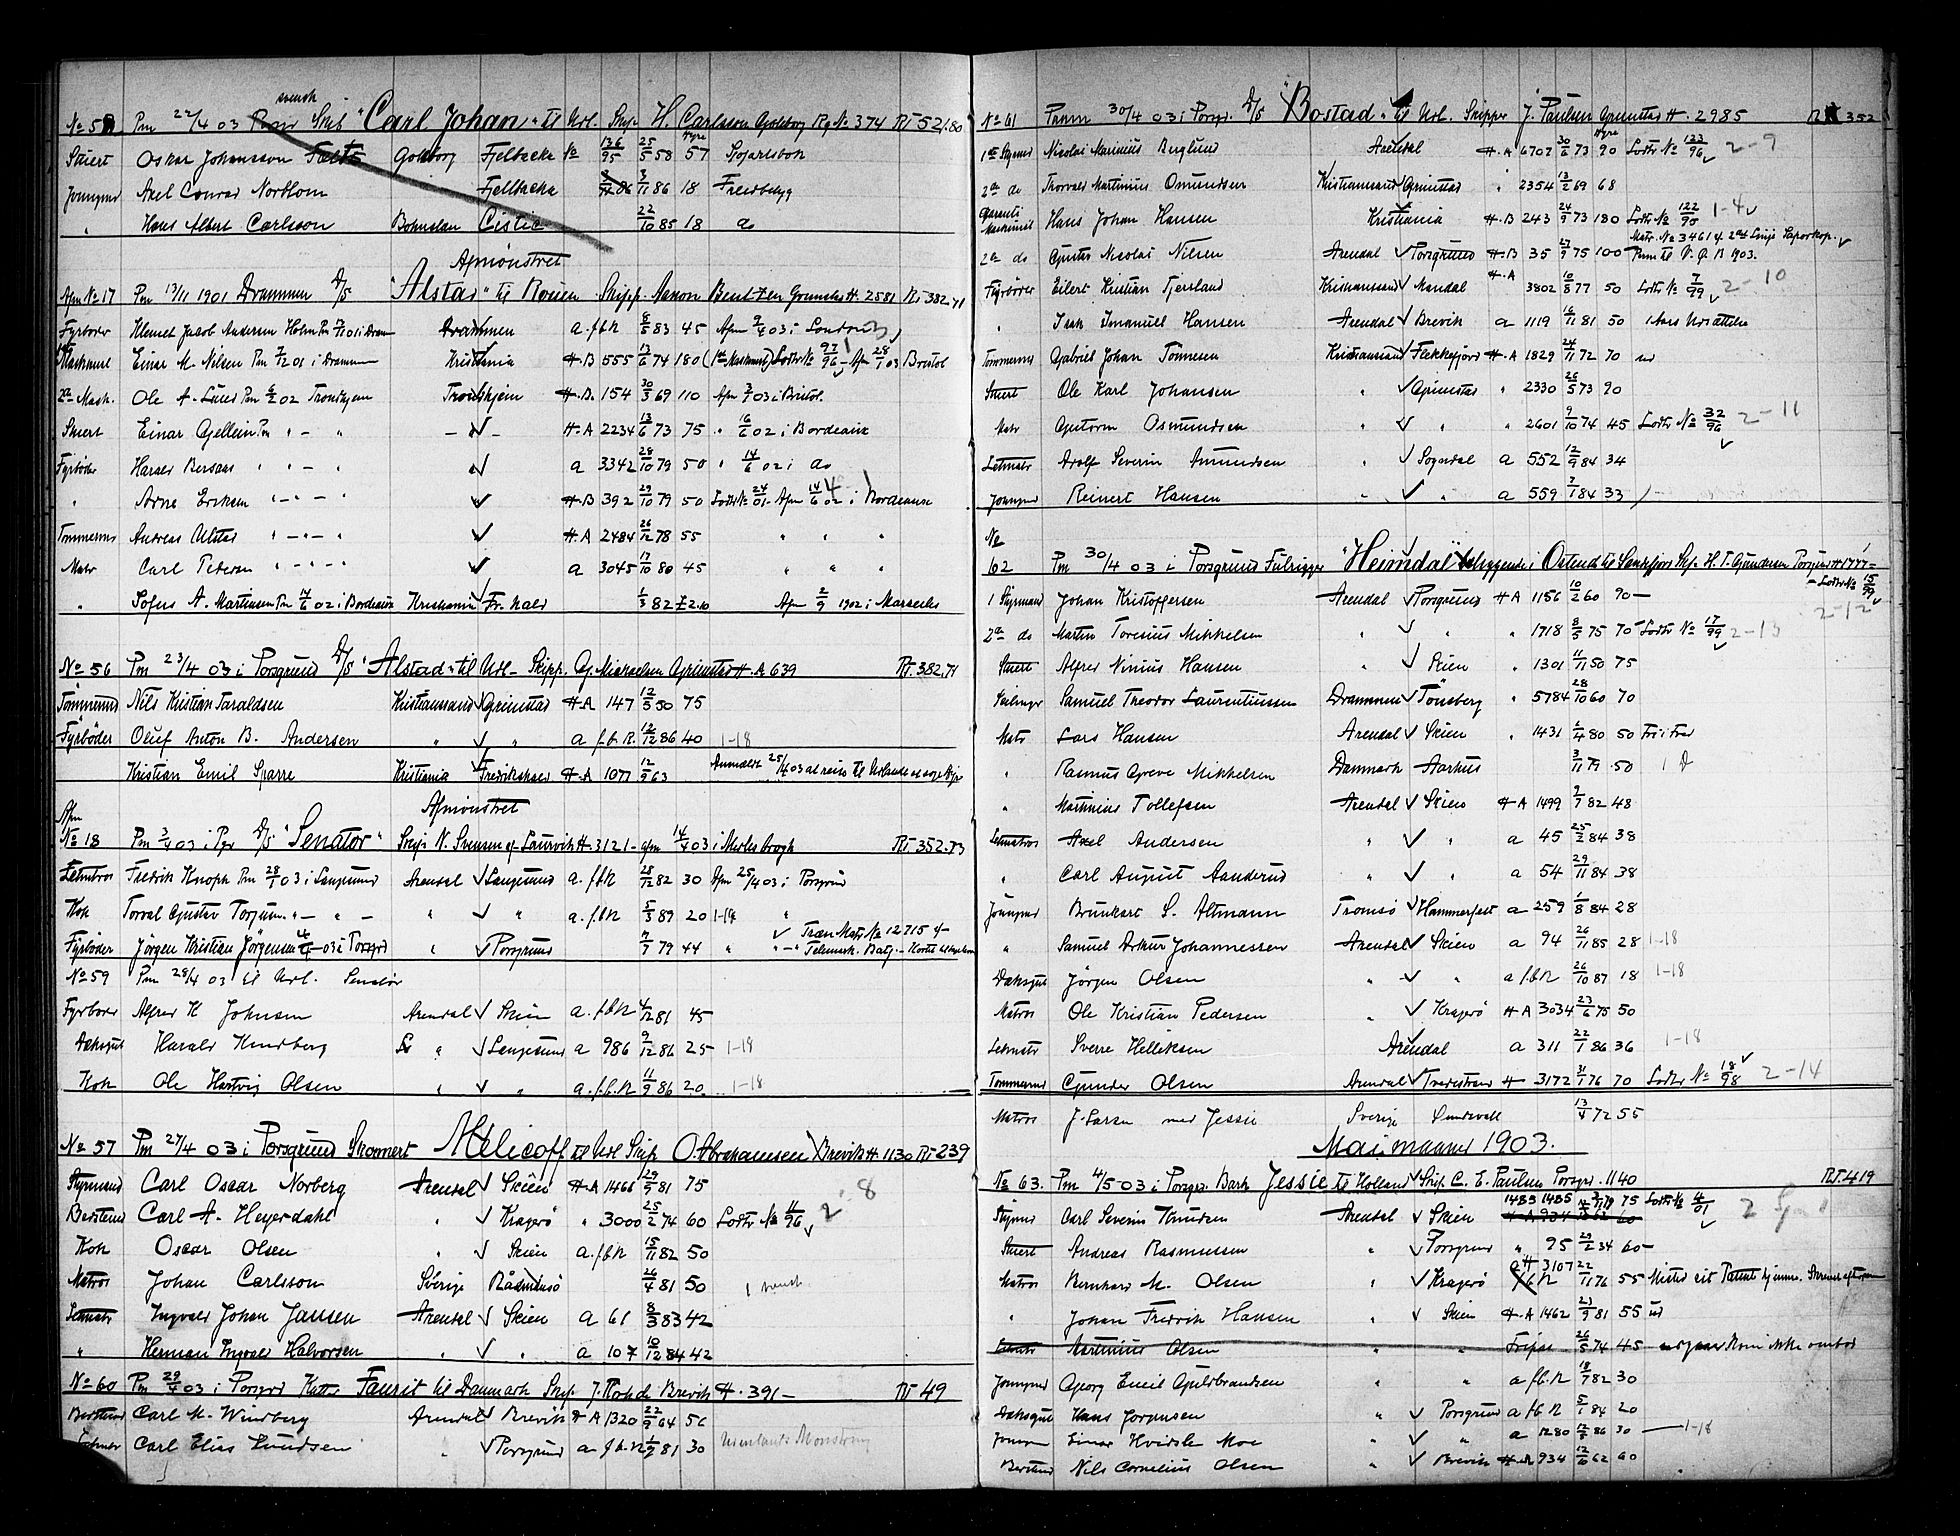 svensk
No 58 Pm 22/4 03 Skib "Carl Johan" til Udl. Skip. H. Carlsson Goteborg Rg No 374 RT 521.80
Stuert Oskar Johansson Goteborg Fjelbacka No 136/95 25/5 58 57
Jungmd Axel Conrad Nordblom Fjelbacka 3/11 86 18
" Hans Albert Carlsson Bohuslan 22/10 85 18 do
Afmönstret
Afm No 17 Pm 13/11 1901 Drammen D/S "Alstad" til Rouen Skipp. Bentzen Grimstad H. 2581 RT 382.71
Fyrböder Klemet Jacob Andersen Holm Drammen a.f.b.R 8/5 83 45 Afm 9/4 03 i London
Maskinist Einar M. Nilsen Pm 7/12 01 i Drammen Kristiania H.B 555 13/6 74 180 (1st Maskinist) Lodtr No 97/96 Afm 28/1 03 Bristol
2den Mask. Ole A. Lund Pm 6/2 02 Trondhjem Trondhjem H.B. 154 30/3 69 110 Afm 3/7 03 i Bristol.
Stuert Einar Gjellein Pm " - " - " - H.A 2234 13/6 73 75 " 16/6 02 i Bordeaux
Fyrböder Harald Bersaas " " - " a 3342 28/10 79 50 " 14/6 02 i do
" Arne Eriksen " - " - " H.B 392 29/10 79 50 Lodtr No 24/01 Afm 14/6 02 i Bordeaux
Tømmermd Andreas Ulstad " - " - " H.A 2484 26/12 78 55 " " "
Matr Carl Pedersen " - " - " a 3045 17/10 80 45 " " "
" Sofus A. Martinsen Pm 14/6 02 i Bordeaux Kristiania Fr.hald 1/3 82 £2.10 Afm 2/9 1902 i Marseille
No 56 Pm 23/4 03 i Porsgrund D/S "Alstad" til Udl- Skipp. G. Michaelsen Grimstad H.A 639 RT. 382.71
Tømmermd Nils Kristian Taraldsen Kristianssand Grimstad H.A 147 12/5 50 75
Fyrböder Oluf Anton B. Andersen " " a f.b.R. 12/12 86 40 1-18
Kristian Emil Sparre Kristiania Fredrikshald H.A 1077 12/9 63 Anmeldt 25/4 03 at reise til Udlandet
Afmönstret
Afm No 18 Pm 3/4 03 i Pgr D/S "Senator" Skip. N. Svensen af Laurvik H. 3121 - afm 14/4 03 i RT 352.73
Letmtros Fredrik Knoph Pm 28/1 03 i Langesund Arendal Langesund a. f.b.R 28/12 82 30 Afm 25/4 03 i Porsgrund
Kok Torval Gustav " - " - " " a.f.b.R 5/3 89 20 1-19 "
Fyrböder Jörgen Kristian Jörgensen 03 i Porsgrd " Porsgrund 7/7 79 44 " Træn Matr No 12715 Telemark. Batj.
No 59 Pm 28/4 03 til Udl. Senator
Fyrböder Alfred K Johnsen Arendal Skien a. f.b.R 4/12 81 45
Dæksgut Harald Kindberg " Langesund a 986 9/12 86 25 1-18
Kok Ole Hartvig Olsen " " a.f.b.R 11/9 86 20. 1-18
No 57 Pm 27/4 03 i Porsgrund Skonnert Melicoff til Udl Skip O Abrahamsen Brevik H 1130 RT 239
Styrmand Carl Oscar Norberg Arendal Skien H.A 1466 29/9 81 75
Bestmd Carl A. Heyerdahl " Kragerø " 3000 25/2 74 60 Lodtr No 11/96 2-8
Kok Oscar Olsen " Skien a.f.b.R 15/11 82 50
Matros Johan Carlsson Sverige 26/4 81 50
Letmatr Ingvald Johan Jansen Arendal Skien a 61 8/3 83 42
" Herman Ingvald Halvorsen " " a 107 10/12 84 42
No 60 Pm 29/4 03 i Porsgrd Kutter Faurit til Danmark Skip. J. Rohde Brevik H. 391 - RT 49
Bestmd Carl M. Windberg Arendal Brevik H A 1320 22/9 64 56
Carl Elias Knudsen " Porsgrund a f.b.R 1/9 81 30 Udenlands Mønstring
No 61 Pmm 30/4 03 i Porsgr. D/S "Bostad" til Udl. Skipper J. Paulsen Grimstad H. 2985 RT 352
1ste Styrmd Nicolai Marinius Berglund Arendal H.A 6702 30/6 73 90 Lodtr No 123/96 2-9
2den do Thorvald Martinius Osmundsen Kristianssand Grimstad " 2354 13/2 69 68
Maskinist Hans Johan Hansen Kristiania H.B 243 24/9 73 180 Lodtr No 122/90 1-4
2den do Gustav Nicolai Nilsen Arendal Porsgrund H.B 35 27/9 75 100 Matr. No 34614
Fyrböder Eilert Kristian Fjersland Kristianssand Mandal H.A 3802 10/5 77 50 Lodtr No 7/99 2-10
" Isak Imanuel Hansen Arendal Brevik a 1119 16/11 81 50 1 Aars Udsættelse
Tømmermd Gabriel Johan Tönnesen Kristianssand Flekkefjord H.A 1829 24/11 72 70 ud
Stuert Ole Karl Johansen " Grimstad " 2330 26/5 73 90
Matr Guttorm Osmundsen " " " 2601 9/10 74 45 Lodtr No 32/96 2-11
Letmatr Adolf Severin Amundsen " Sogndal a 552 12/9 84 34
Jungmd Reinert Hansen " " a 559 3/1 84 33
No 62 Pm 30/4 03 i Porsgrund Fuldrigger "Heimdal" liggende i Ostend til Sandefjord Skp. H. T. Gundersen Porsgrund H 1777 - Lodtr No 15/99
1 Styrmand Johan Kristoffersen Arendal Porsgrund H A 1156 10/2 60 90 - 2-12
2den do Martin Toresius Mikkelsen " " " 1718 8/5 75 70 - Lodtr No 17/99 2-13
Stuert Alfred Ninius Hansen " Skien " 1301 11/11 50 75
Seilmager Samuel Theodor Laurentiussen Drammen Tönsberg " 5784 28/10 60 70
Matr Lars Hansen Arendal Skien " 1431 1/4 80 50
" Rasmus Greve Mikkelsen Danmark Aarhus 3/11 79 50
" Martinius Tollefsen Arendal Skien H A 1499 9/7 82 48
Letmatros Axel Andersen " " a 45 25/2 84 38
" Carl August Aanderud " " a 54 29/11 84 38
Jungmd Brunhart S. Altmann Tromsö Hammerfest a 259 1/8 84 28
" Samuel Arthur Johannessen Arendal Skien a 94 26/11 85 28 1-18
Dæksgut Jörgen Olsen " " a f.b.R 26/10 87 18 1-18
Matros Ole Kristian Pedersen " Kragerø H A 3034 23/6 75 50
Letmatr Sverre Helliksen Arendal a 311 22/1 86 36 1-18
Tømmermd Gunder Olsen Arendal Tvedestrand H 3172 31/1 76 70 Lodtr No 18/98 2-14
Matros J. Larsen med Jessie Sverige Sundsvall 13/4 72 55
Mai maaned 1903.
No 63. Pm 4/5 03 i Porsgr. Bark Jessie til Holland Skip. C. E. Paulsen Porsgr. 1140 RT. 419
Styrmd Carl Severin Knudsen Arendal Skien 1485 75 Lodtr No 4/01
Stuert Andreas Rasmussen " Porsgrund " 95 29/2 34 60 -
Matros Bernhard M. Olsen " Kragerø a H 3107 22/11 76 55 Mistet sit Patent
" Johan Fredrik Hansen " Skien H.A 1462 23/9 81 55 ud
Letmatr Martinius Olsen " " 26/5 74 45 Kom ikke ombord
Jungmd Georg Emil Guldbrandsen " " a f.b.R 18/7 82 30
Dæksgut Hans Jorgensen " Porsgrund a f.b R 5/1 84 20
Jungm Einar Hvidsle Moe " " a 1280 12/8 86 30 - 1-18
Bestmd Nils Cornelius Olsen " Brevik H.A 934 12/10 62 60